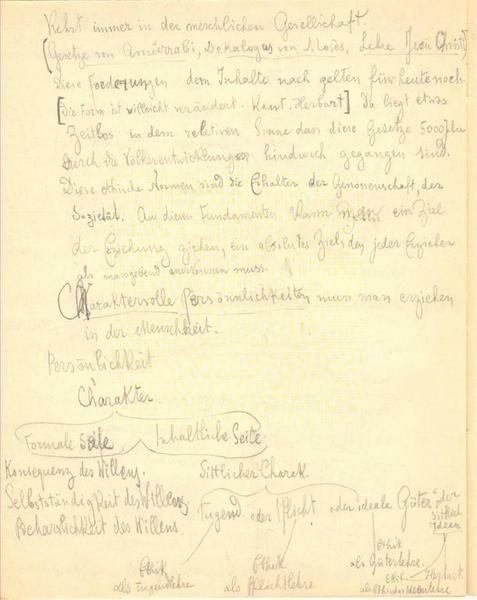 Kehrt immer in der meschlichen Gesellschaft.
(Gesetze von Amurrabi, Dekalogus von Moiès, Lehre Jesu Christi)
Diese Forderungen dem Inhalte nach gelten für heute noch.
[Die Form ist villeicht verändert. Kant. Herbart] Da liegt etwas
Zeitlos in dem relativen Sinne dass diese Gesetze 5000 Jhr
durch die Völkerentwicklungen hindurch gegangen sind.
Diese ethische Normen sind die Erhalter der Genossenschaft, der
Sozietät. Aus diesen Fundamenten kann ein Ziel
der Erziehung ziehen, ein absolutes Ziel, das jeder Erzieher
als massgebend anerkennen muss.
Charaktervolle Persönnlichkeiten muss man erziehen
in der Menschheit.
Persönlichkeit
Charakter
Formale Seite Inhaltliche Seite
Konsequenz des Willens. Sittlicher Charak.
Selbstständigkeit des Willens Tugend oder Pflicht oder ideale Güter oder sittlich Ideen
Beharrlichkeit des Willens
Ethik als Tugendlehre Ethik als Pflichtlehre Ethik als Güterlehre.
Ethik. Herbart
als Ethik der Ideenlehre